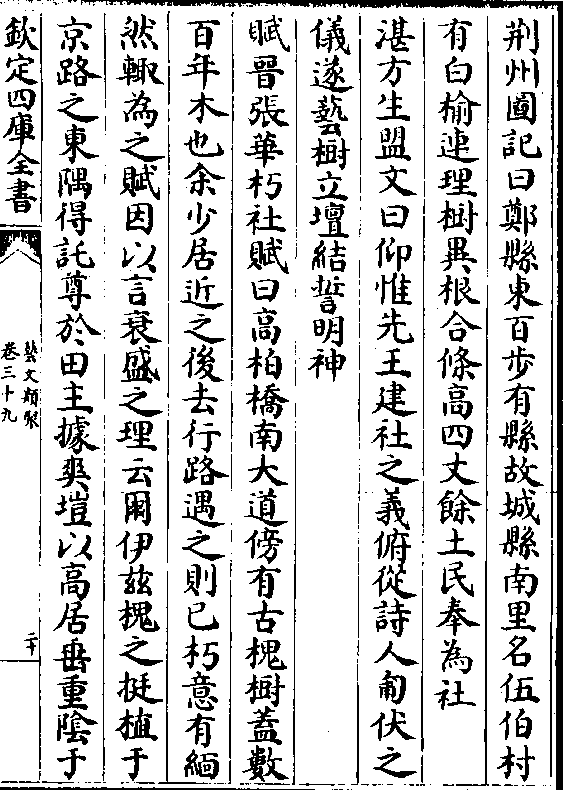 荆州圖記曰鄭縣東百步有縣故城縣南里名伍伯村
有白榆連理樹異根合條高四丈餘土民奉為社
湛方生盟文曰仰惟先王建社之義俯從詩人匍伏之
儀遂藝樹立壇結誓明神
賦晉張華朽社賦曰高柏橋南大道傍有古槐樹蓋數
百年木也余少居近之後去行路遇之則已朽意有緬
然輙為之賦因以言衰盛之理云爾伊茲槐之挺植于
京路之東隅得託尊於田主據爽塏以高居垂重陰于
欽定四庫全書
藝文類聚
卷三十九
二十